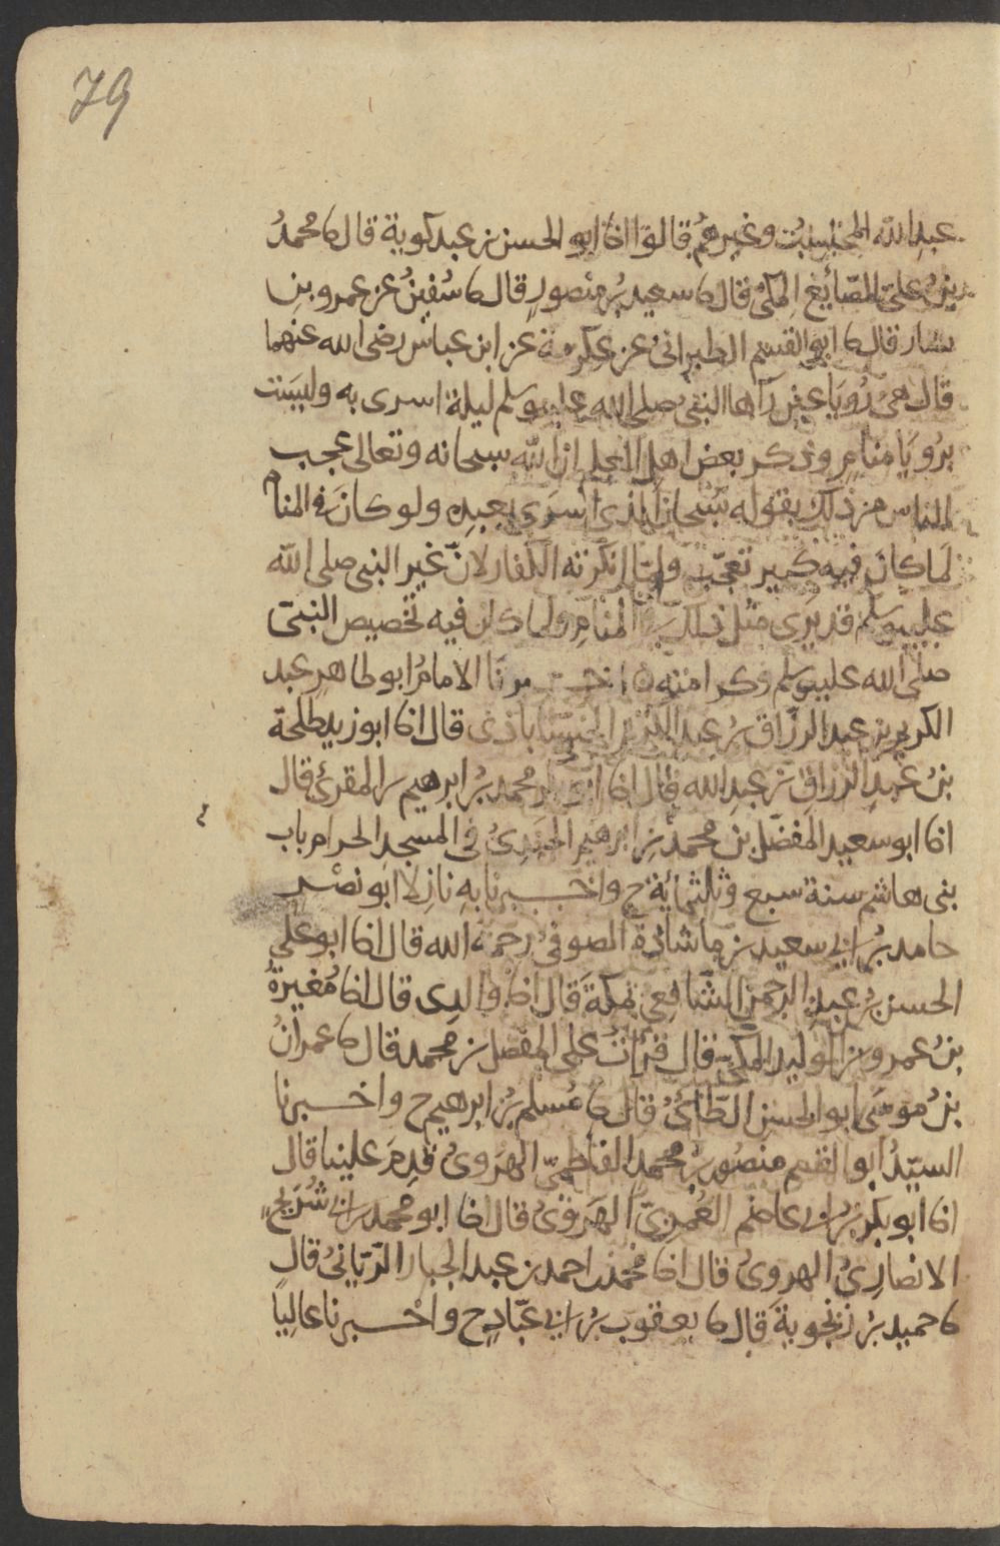 79
عبدالله المحتسبيُّ وغيرهم قالوا انا ابو الحسن بن عبدكوية قال ثنا محمدُ
بنُ علىّ الصّائِغ المكّى قال ثنا سعيد بن منصورٍ قال ثنا سُفينُ عن عمرو بنِ
قال ثنا ابو القسم الطبرانىُّ عن عكرمة عن ابن عباس رضى الله عنهما
قال هىَ رُويَا عينٍ رآها النبىُّ صلى الله عليه وسلم ليلة اسرى به وليسَت
برُويَا منامٍ وذكر بعض اهل العلم ان الله سبحانه وتعالى عجب
الناس من ذلك بقوله سُبْحان الذى أسْرَى بعبدِه ولو كانَ فى المنام
لَما كان فيه كبير تعجّب ولما انكرته الكفار لانّ غير النبى صلى الله
عليه وسلم قد يَرى مثل ذلك فى المنامِ ولما كان فيه تخصيص النبىّ
صلى الله عليه وسلم وكرامته ٥ اخبرنا الامامُ ابو طاهرٍ عبد
الكريم بن عبد الرزّاق بن عبد الكريم الحسناباذى قال انا ابو زيد طلحة
بنُ عبدِ الرزاقِ بن عبدِ الله قال انا ابو بكر محمد بنُ ابرهيم بن المقرئ قال
انا ابو سعيد المفضّل بن محمد بنِ ابرهيم الجَندىُّ فى المسجد الحرام باب
بنى هاشم سنة سبع وثلثمائة ح واخبرنا به نازِلاً ابو نصْر
حامد بنُ ابى سعيد بن ماشاذةَ الصوفىُّ رحمَه الله قال انا ابو على
الحسن بن عبدِ الرحمن الشافعىُّ بمكّةَ قال انا والدى قال انا مُغيرةُ
بنُ عمرو بن الوليد المكّىّ قال قرأتُ على المفضل بن محمد قال ثنا عمرانُ
بنُ موسَى ابو الحسن الطّائىُّ قال ثنا مُسلم بنُ ابرهيم ح واخبرنا
السيّدُ ابو القسم منصُور بنُ محمدٍ الفاطمىّ الهرَوىُّ قدِمَ علينا قال
انا ابو بكر بنُ ابى عاصم العُمَرِىّ الهَرَوىُّ قال انا ابو محمد بن ابى شُرَيح
الانصارىُّ الهروىُّ قال انا محمد بن احمد بن عبد الجبار الرّيّانىُّ قال
ثنا حميد بنُ زنجوية قال ثنا يعقوب بنُ ابى عبّادٍ ح واخبرنا عالِياً